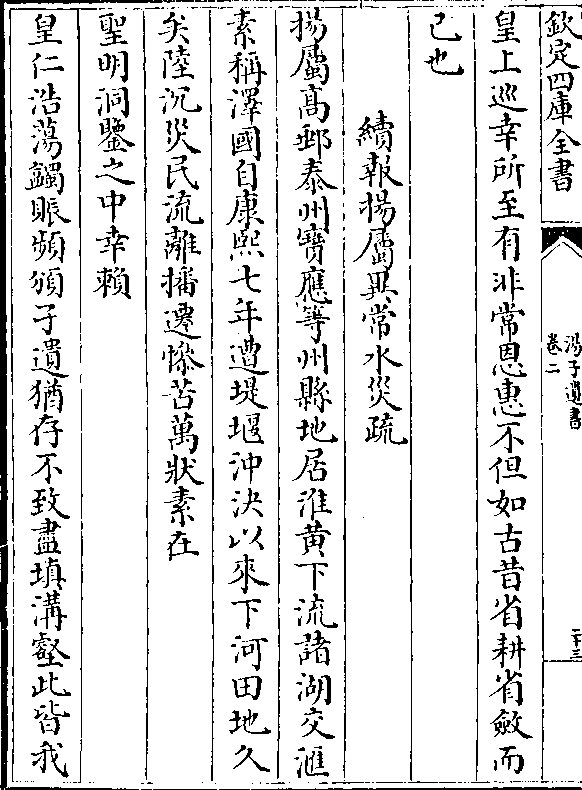 欽定四庫全書
湯子遺書
卷二
二十三
皇上巡幸所至有非常恩惠不但如古昔省耕省斂而
已也
續報揚屬異常水災疏
揚屬高郵泰州寶應等州縣地居淮黄下流諸湖交滙
素稱澤國自康熙七年遭堤堰沖決以來下河田地久
矣陸沉災民流離播遷慘苦萬狀素在
聖明洞鑒之中幸賴
皇仁浩蕩蠲賑頻頒孑遺猶存不致盡填溝壑此皆我